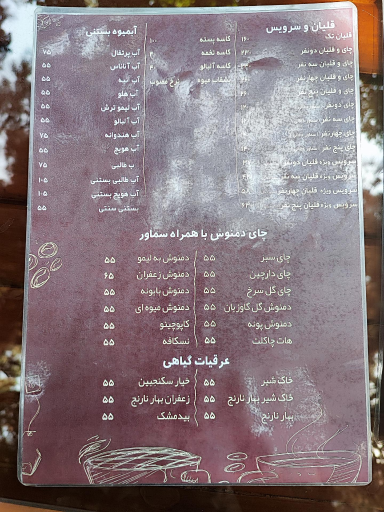 قلیان و سرویس
قلیان تک ۱۶۰
چای و قلیان دونفر
چای و قلیان سه نفر
چای و قلیان چهارنفر
چای و قلیان پنج نفر
چای دونفر
چای سه نفر
چای چهارنفر
چای پنج نفر
سرویس ویژه قلیان دونفر
سرویس ویژه قلیان سه نفر
سرویس ویژه قلیان چهارنفر
سرویس ویژه قلیان پنج نفر
کاسه پسته
کاسه تخمه
کاسه آلبالو
بشقاب میوه نرخ مصوب
آبمیوه بستنی
آب پرتقال ۷۵
آب آناناس ۵۵
آب انبه ۵۵
آب هلو ۵۵
آب لیمو ترش ۵۵
آب آلبالو ۵۵
آب هندوانه ۷۵
آب هویج ۵۵
ب طالبی ۷۵
آب طالبی بستنی ۱۰۵
آب هویج بستنی ۱۰۵
بستنی سنتی ۵۵
چای دمنوش با همراه سماور
چای سبز ۵۵
چای دارچین ۵۵
چای گل سرخ ۵۵
دمنوش گل گاوزبان ۵۵
دمنوش پونه ۵۵
هات چاکلت ۵۵
دمنوش به لیمو ۵۵
دمنوش زعفران ۶۵
دمنوش بابونه ۵۵
دمنوش میوه ای ۵۵
کاپوچینو ۵۵
نسکافه ۵۵
عرقیات گیاهی
خاک شیر ۵۵
خاک شیر بهار نارنج ۵۵
بهار نارنج ۵۵
خیار سکنجبین ۵۵
زعفران بهار نارنج ۵۵
بیدمشک ۵۵